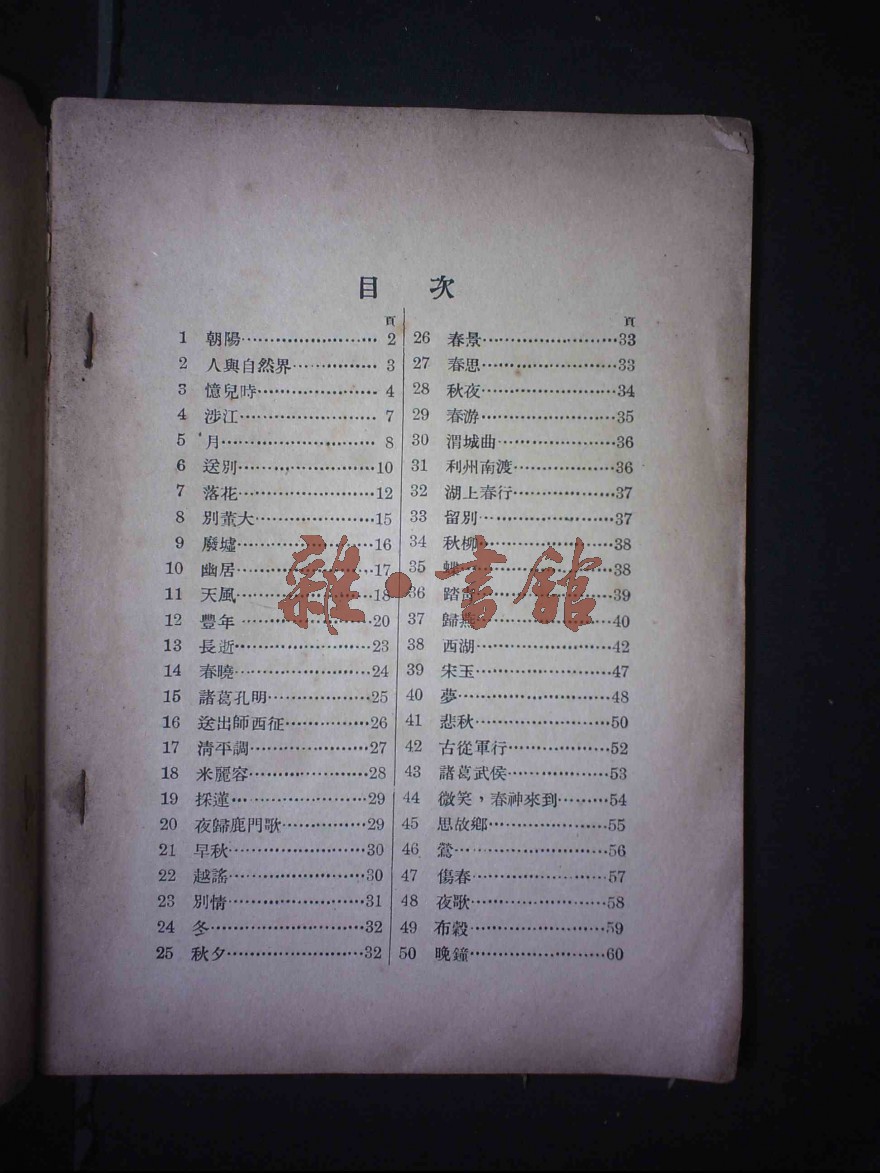 目 次
頁
1 朝陽 2
2 人與自然界 3
3 憶兒時 4
4 涉江 7
5 月 8
6 送別 10
7 落花 12
8 別董大 15
9 廢墟 16
10 幽居 17
11 天風 18
12 豐年 20
13 長逝 23
14 春曉 24
15 諸葛孔明 25
16 送出師西征 26
17 清平調 27
18 米麗容 28
19 採蓮 29
20 夜歸鹿門歌 29
21 早秋 30
22 越謠 30
23 別情 31
24 冬 32
25 秋夕 32
頁
26 春景 33
27 春思 33
28 秋夜 34
29 春游 35
30 渭城曲 36
31 利州南渡 36
32 湖上春行 37
33 留別 37
34 秋柳 38
35 蝶 38
36 踏 39
37 歸燕 40
38 西湖 42
39 宋玉 47
40 夢 48
41 悲秋 50
42 古從軍行 52
43 諸葛武侯 53
44 微笑，春神來到 54
45 思故鄉 55
46 鶯 56
47 傷春 57
48 夜歌 58
49 布穀 59
50 晚鐘 60
雜·書館